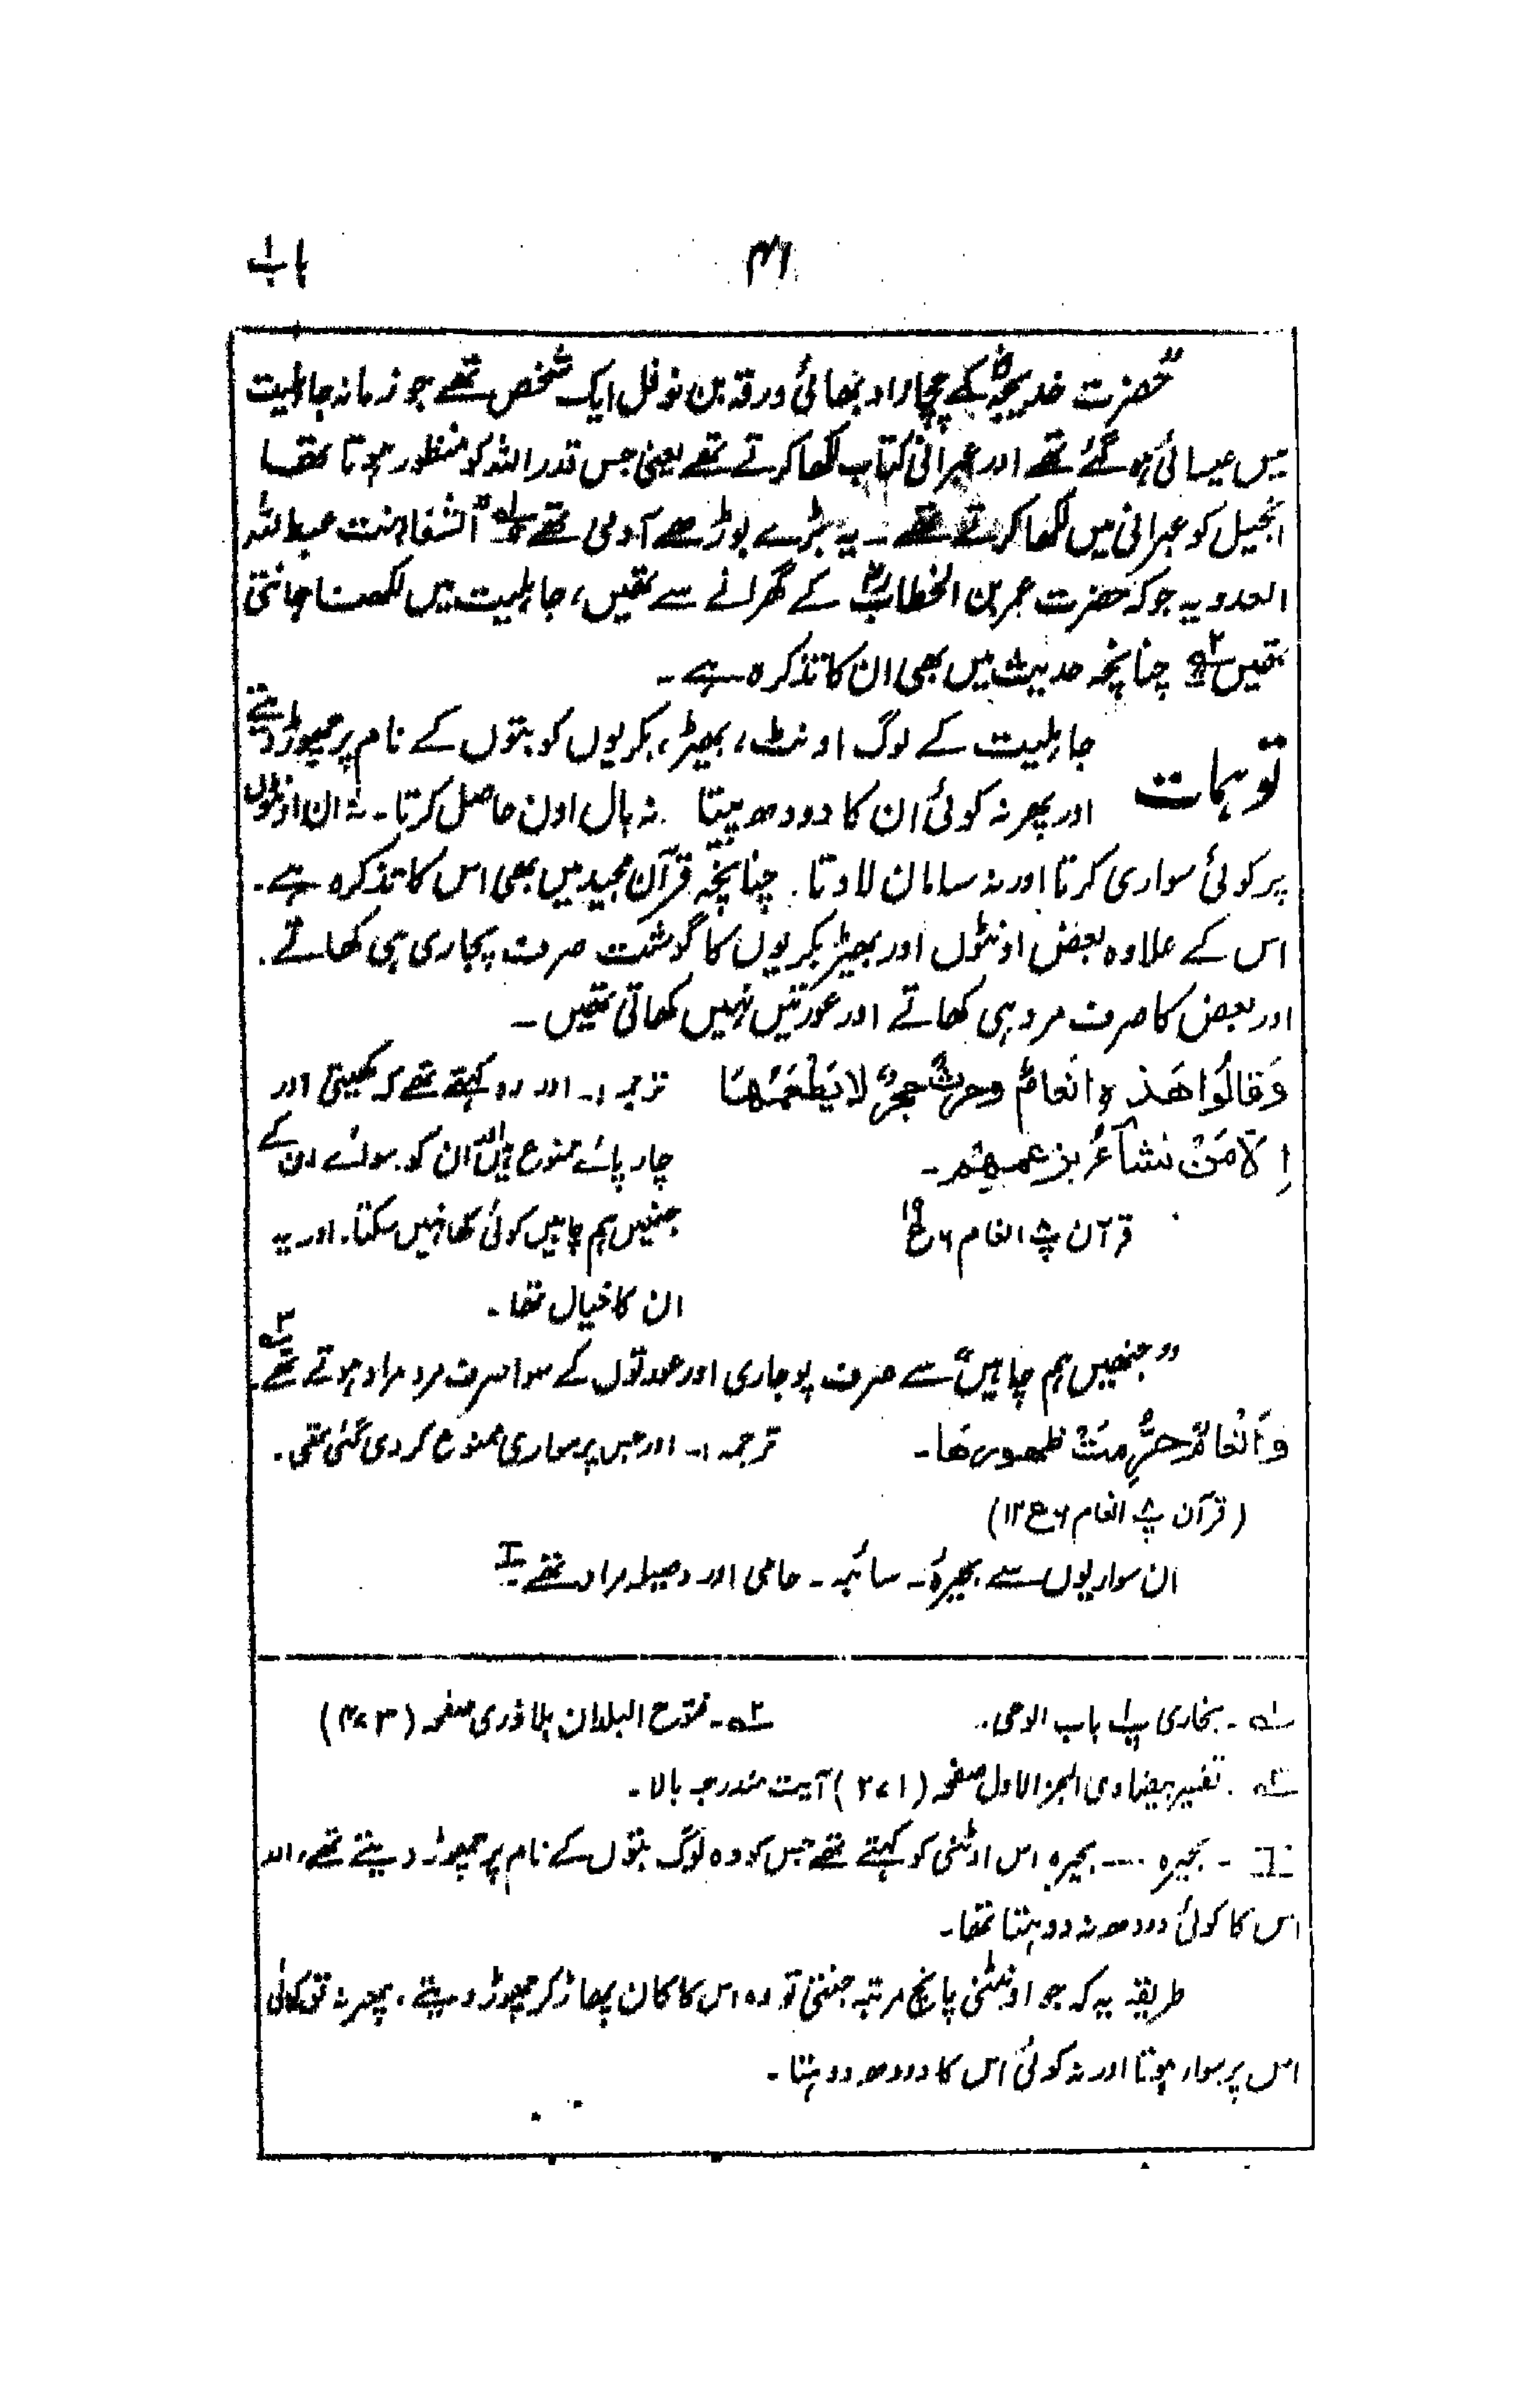 باب ۱
۴۱
”حضرت خدیجہؓ کے چچا زاد بھائی ورقہ بن نوفل ایک شخص تھے جو زمانہ جاہلیت
میں عیسائی ہو گئے تھے اور عبرانی کتاب لکھا کرتے تھے یعنی جس قدر اللہ کو منظور ہوتا تھا
انجیل کو عبرانی میں لکھا کرتے تھے ۔ یہ بڑے بوڑھے آدمی تھے“ ۱؎ الشفاء بنت عبداللہ
العدویہ جو کہ حضرت عمر بن الخطابؓ کے گھرانے سے تھیں، جاہلیت میں لکھنا جانتی
تھیں ۲؎ چنانچہ حدیث میں بھی ان کا تذکرہ ہے ۔
توہمات
جاہلیت کے لوگ اونٹ، بھیڑ، بکریوں کو بتوں کے نام پر چھوڑ دیتے
اور پھر نہ کوئی ان کا دودھ پیتا ۔ نہ بال اون حاصل کرتا ۔ نہ ان اونٹوں
پر کوئی سواری کرتا اور نہ سامان لادتا ۔ چنانچہ قرآن مجید میں بھی اس کا تذکرہ ہے ۔
اس کے علاوہ بعض اونٹوں اور بھیڑ بکریوں کا گوشت صرف پجاری ہی کھاتے ۔
اور بعض کا صرف مرد ہی کھاتے اور عورتیں نہیں کھاتی تھیں ۔
وَقَالُوا هَذِهٖ اَنْعَامٌ وحرثٌ حِجرٌ لا يَطْعَمُهَا
اِلَّا مَنْ نشآءُ بزعمهم ۔
قرآن پ۸ انعام ۶ ع ۱۶
ترجمہ :۔ اور وہ کہتے تھے کہ کھیتی اور
چارپائے ممنوع ہیں ان کو سوائے ان کے
جنھیں ہم چاہیں کوئی کھا نہیں سکتا ۔ اور یہ
ان کا خیال تھا ۔
”جنھیں ہم چاہیں“ سے صرف پوجاری اور عورتوں کے سوا صرف مرد مراد ہوتے تھے ۳؎
وَاَنْعَامٌ حُرِّمَتْ ظهورها ۔
ترجمہ :۔ اور جس پر سواری ممنوع کر دی گئی تھی ۔
(قرآن پ۸ انعام ۶ ع ۱۲)
ان سواریوں سے بحیرہ ۔ سائبہ ۔ حامی اور وصیلہ مراد تھے
۱؎ ۔ بخاری پ۱ باب الوحی ۔
۲؎ ۔ فتوح البلدان بلاذری صفحہ (۴۷۳)
۳؎ ۔ تفسیر بیضاوی الجز الاول صفحہ (۲۷۱) آیت مندرجہ بالا ۔
۔ بحیرہ ۔۔۔۔ بحیرہ اس اونٹنی کو کہتے تھے جس کو وہ لوگ بتوں کے نام پر چھوڑ دیتے تھے، اور
اس کا کوئی دودھ نہ دوہتا تھا ۔
طریقہ یہ کہ جو اونٹنی پانچ مرتبہ جنتی تو وہ اس کا کان پھاڑ کر چھوڑ دیتے ، پھر نہ تو کوئی
اس پر سوار ہوتا اور نہ کوئی اس کا دودھ دوہتا ۔